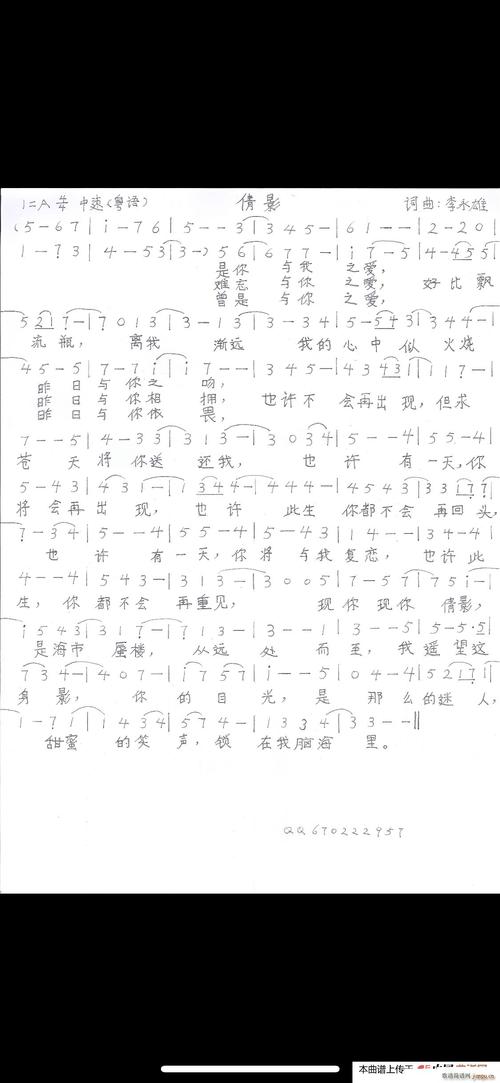 1=A 4/4 中速(粤语) 倩影 词曲:李永雄
(5-67|i-76|5--3|345-|61--|2-20|
1-73|4-53|3-)56|677-|i7-5|4-455|
是你 与我 之爱,
难忘 与你 之爱, 好比飘
曾是 与你 之爱,
5217-|7013|3-13|3-34|5-543|344-|
流瓶, 离我 渐远 我的心中似火烧
45-5|7-7i|i7-|345-|43431|117-|
昨日与你之吻,
昨日与你相拥, 也许不会再出现,但求
昨日与你依偎,
7--5|4-33|313-|3034|5--4|55-4|
苍天将你送还我, 也许有一天,你
5-43|431-|1344-|344-|4543|3317|
将会再出现, 也许此生你都不会再回头,
7-34|5--4|55-4|5-43|14--|34-4|
也许有一天,你将与我复恋, 也许此
4--4|543-|313-|3005|7-57|75i-|
生,你都不会再重见, 现你现你倩影,
i543|317-|713-|3--1|3--5|5-55|
是海市蜃楼, 从远处而至,我遥望这
734-|407-|i757|i--5|04-4|5217|
身影, 你的目光,是那么的迷人,
1-71|1434|574-|1334|33--||
甜蜜的笑声,锁在我脑海里。
QQ670222957
本曲谱上传于